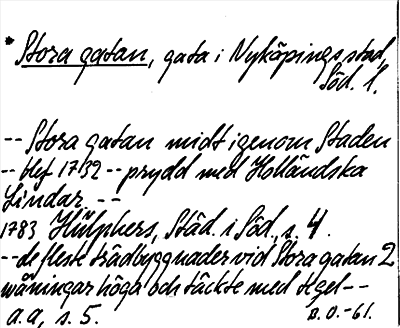 * Stora gatan, gata i Nyköpings stad,
Söd. l.
-- Stora gatan midt igenom Staden
-- blef 1732 -- prydd med Holländska
Lindar --
1783 Hülphers, Städ. i Söd., s. 4.
-- de fleste trädbyggnader vid Stora gatan 2
wåningar höga och täckte med tegel --
a.a., s. 5.
B. O. -61.